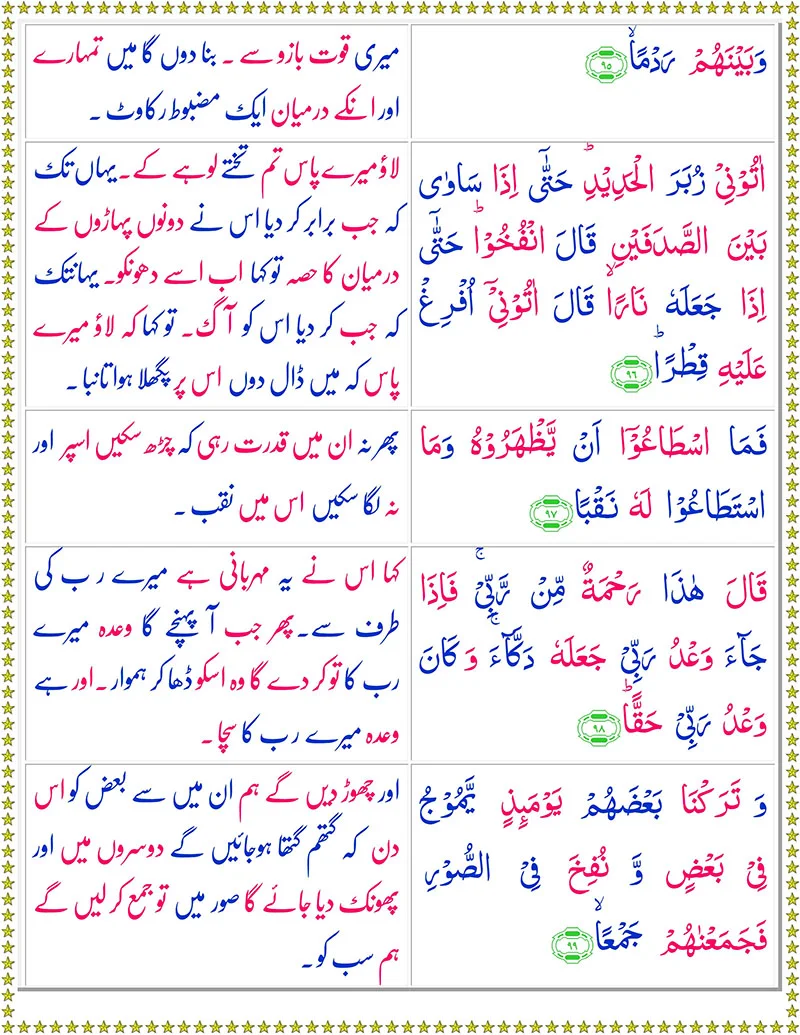 وَبَيْنَهُمْ رَدْمًاۙ ﴿۹۵﴾
میری قوت بازو سے ۔ بنا دوں گا میں تمہارے
اور انکے درمیان ایک مضبوط رکاوٹ ۔
اٰتُوْنِیْ زُبَرَ الْحَدِیْدِؕ حَتّٰۤی اِذَا سَاوٰی
بَیْنَ الصَّدَفَیْنِ قَالَ انْفُخُوْاؕ حَتّٰۤی
اِذَا جَعَلَهٗ نَارًاۙ قَالَ اٰتُوْنِیْۤ اُفْرِغْ
عَلَیْهِ قِطْرًاؕ ﴿۹۶﴾
لاؤ میرے پاس تم تختے لوہے کے۔ یہاں تک
کہ جب برابر کر دیا اس نے دونوں پہاڑوں کے
درمیان کا حصہ تو کہا اب اسے دھونکو۔ یہانتک
کہ جب کر دیا اس کو آگ۔ تو کہا کہ لاؤ میرے
پاس کہ میں ڈال دوں اس پر پگھلا ہوا تانبا۔
فَمَا اسْطَاعُوْۤا اَنْ یَّظْهَرُوْهُ وَمَا
اسْتَطَاعُوْا لَهٗ نَقْبًا ﴿۹۷﴾
پھر نہ ان میں قدرت رہی کہ چڑھ سکیں اسپر اور
نہ لگا سکیں اس میں نقب ۔
قَالَ هٰذَا رَحْمَةٌ مِّنْ رَّبِّیْۚ فَاِذَا
جَآءَ وَعْدُ رَبِّیْ جَعَلَهٗ دَكَّآءَۚ وَ كَانَ
وَعْدُ رَبِّیْ حَقًّاؕ ﴿۹۸﴾
کہا اس نے یہ مہربانی ہے میرے رب کی
طرف سے۔ پھر جب آ پہنچے گا وعدہ میرے
رب کا تو کر دے گا وہ اسکو ڈھا کر ہموار۔ اور ہے
وعدہ میرے رب کا سچا۔
وَ تَرَكْنَا بَعْضَهُمْ یَوْمَىِٕذٍ یَّمُوْجُ
فِیْ بَعْضٍ وَّ نُفِخَ فِی الصُّوْرِ
فَجَمَعْنٰهُمْ جَمْعًاۙ ﴿۹۹﴾
اور چھوڑ دیں گے ہم ان میں سے بعض کو اس
دن کہ گتھم گتھا ہوجائیں گے دوسروں میں اور
پھونک دیا جائے گا صور میں تو جمع کر لیں گے
ہم سب کو۔